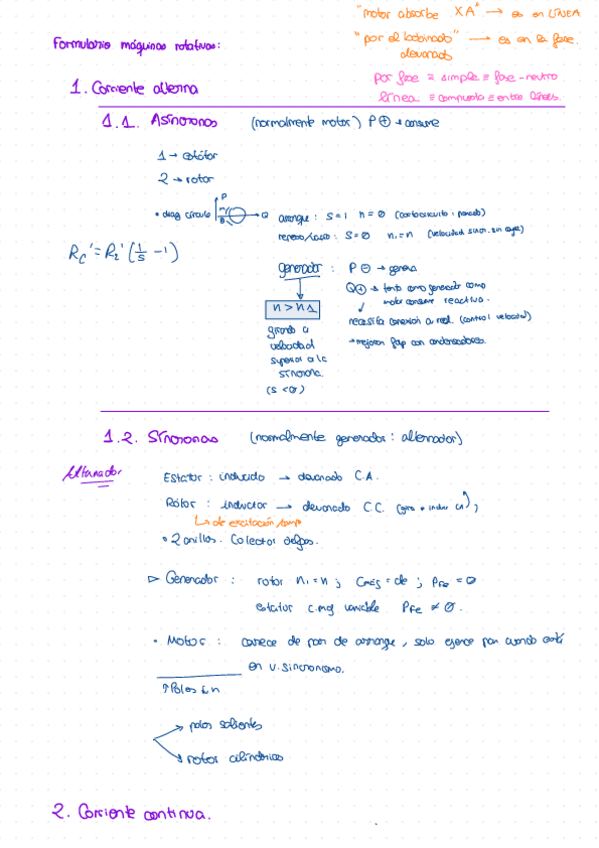 "motor absorbe XA" → es en LÍNEA
"por el bobinado" → es en la fase.
devanado
Formulario máquinas rotativas:
por fase ≡ simple ≡ fase-neutro
línea ≡ compuesta ≡ entre líneas.
1. Corriente alterna
1.1. Asíncronos (normalmente motor) P⊕ → consume
1 → estátor
2 → rotor
• diag círculo P Q
arranque: S=1 n=0 (cortocircuito: parado)
S=0 n₁=n (velocidad sincr. sin carga)
Rc' = R2' (1/s − 1)
generador: P⊖ → genera
Q⊕ → tanto como generador como
motor consume reactiva.
n > n1
necesita conexión a red. (control velocidad)
→ mejoran fdp con condensadores.
girando a
velocidad
superior a la
síncrona.
(s<0)
1.2. Síncronas (normalmente generador: alternador)
Alternador
Estator: inducido → devanado C.A.
Rotor: inductor → devanado C.C.
↳ de excitación
• 2 anillos. Colector delgas.
▷ Generador: rotor n₁=n; ; PFe = 0
estator c.mg variable PFe ≠ 0.
• Motor: carece de par de arranque, solo ejerce par cuando está
en v. sincronismo.
↑Polos ↓n
→ polos salientes
→ rotor cilíndrico
2. Corriente continua.